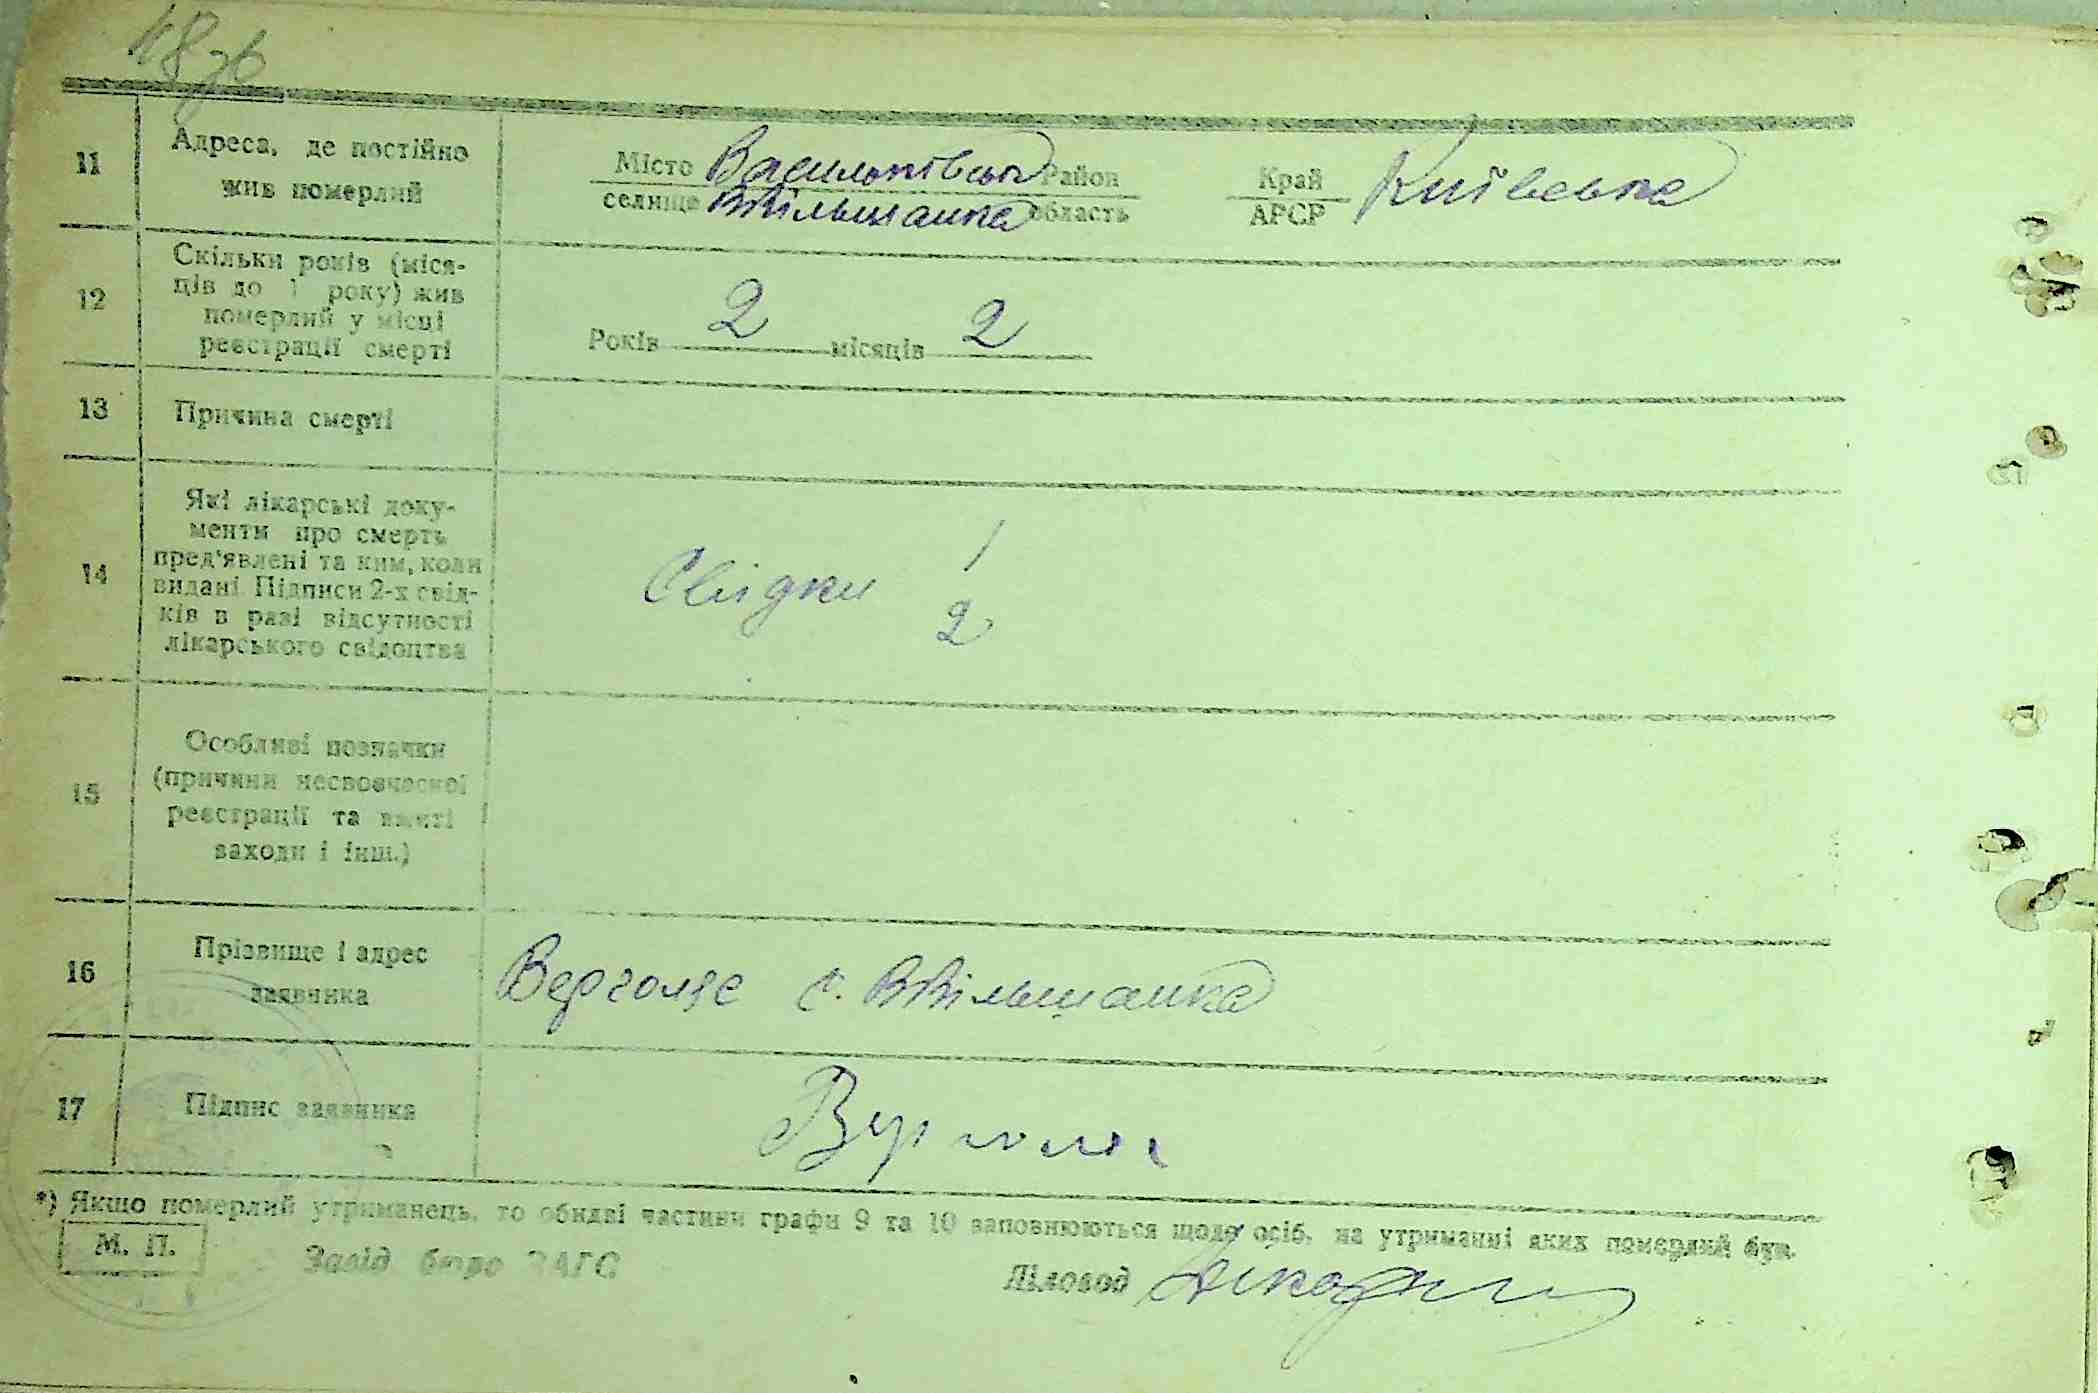 48зв
11
Адреса, де постійно
жив померлий
Місто Васильківськ Район
селище ВВільшанка область
Край Київська
АРСР
12
Скільки років (міся-
ців до 1 року) жив
померлий у місці
реєстрації смерті
Років 2 місяців 2
13
Причина смерті
14
Які лікарські доку-
менти про смерть
пред'явлені та ким, коли
видані. Підписи 2-х свід-
ків в разі відсутності
лікарського свідоцтва
Свідки 1
2
15
Особливі позначки
(причини несвоєчасної
реєстрації та вжиті
заходи і інш.)
16
Прізвище і адрес
заявника
Верголяс с. ВВільшанка
17
Підпис заявника
*) Якщо померлий утриманець, то обидві частини графи 9 та 10 заповнюються щодо осіб, на утриманні яких померлий був.
М. П.
Завід бюро ЗАГС
Діловод